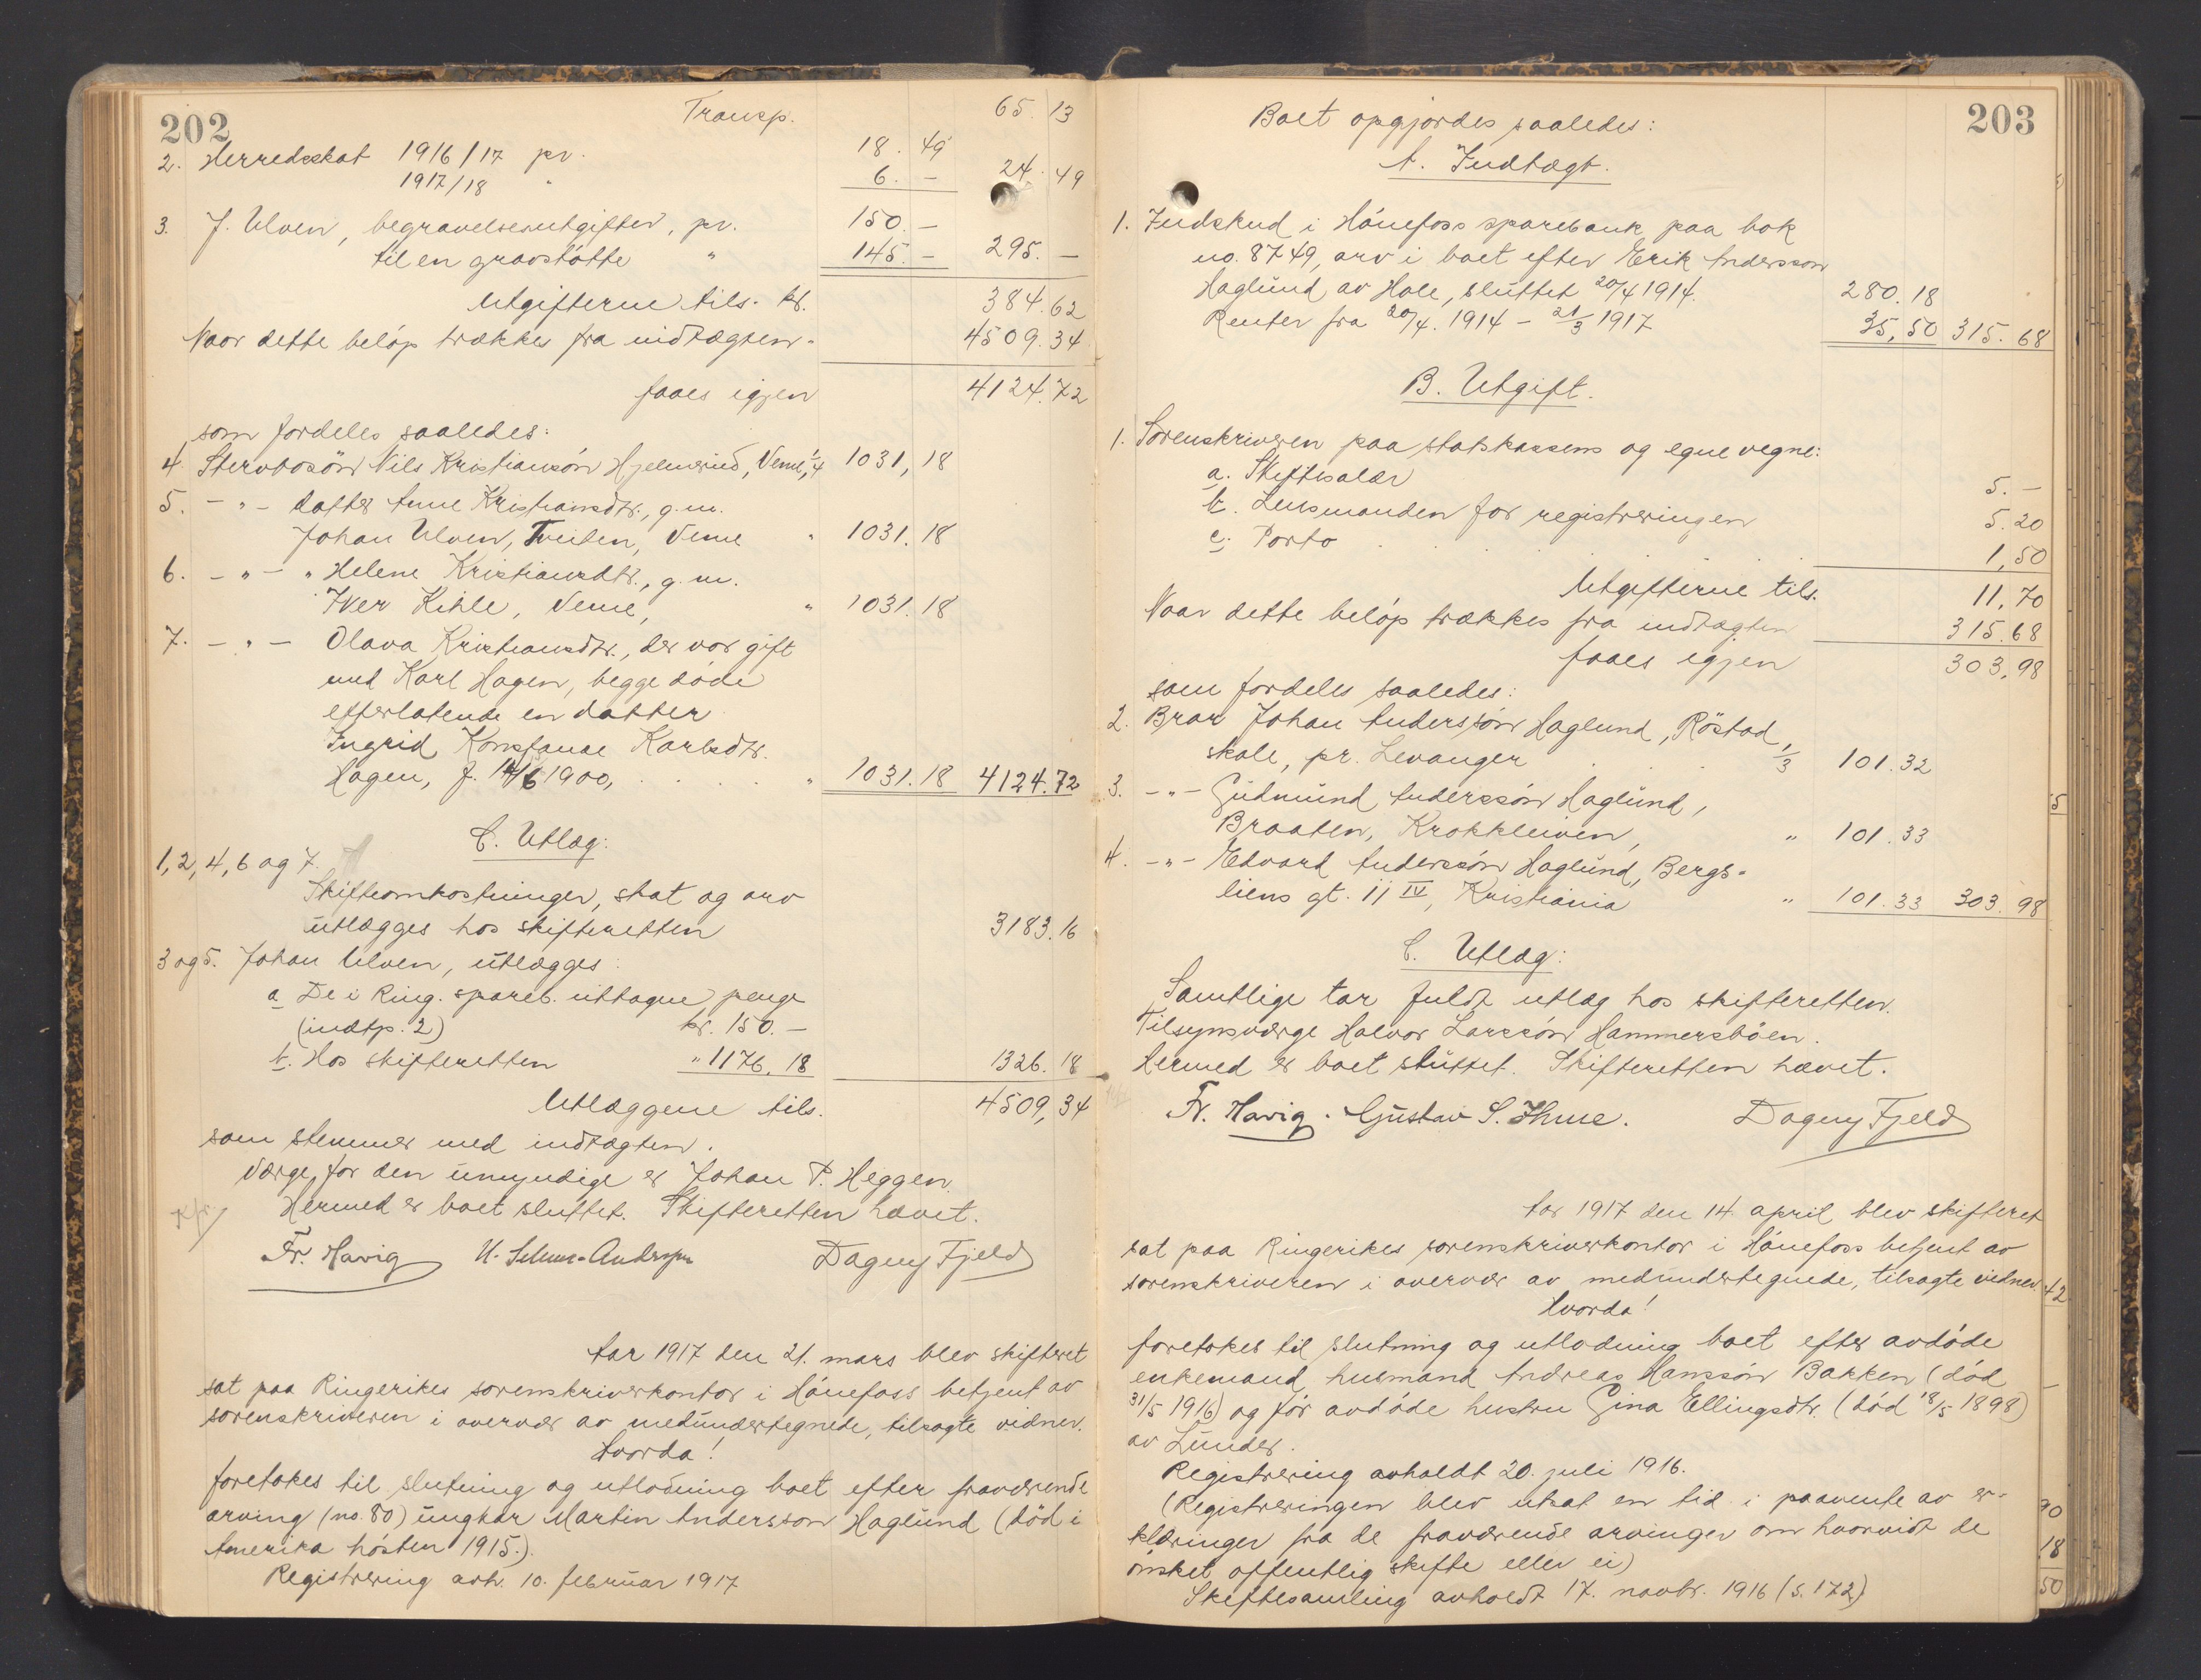 202
Transp. 65. 13
2. Herredsskat 1916/17 pr. 18. 49
1917/18 " 6. – 24. 49
3. J. Ulven, begravelsesutgifter, pr. 150. –
til en gravstøtte " 145. – 295. –
Utgifterne tils. kr. 384.62
Naar dette beløp trækkes fra indtægten - 4509.34
faaes igjen 4124.72
som fordeles saaledes:
4. Stervbosøn Nils Kristiansøn Hjelmerud, Veme, 1/4 1031,18
5. – " – datter Anne Kristiansdtr., g. m.
Johan Ulven, Tveiten, Veme " 1031.18
6. – " – " Helene Kristiansdtr., g. m.
Iver Kihle, Veme, " 1031.18
7. – " – Olava Kristiansdtr., der var gift
med Karl Hagen, begge døde
efterlatende en datter
Ingrid Konstanse Karlsdtr.
Hagen, f. 14/6 1900, " 1031.18 4124.72
C. Utlæg:
1, 2, 4, 6 og 7.
Skifteomkostninger, skat og arv
utlægges hos skifteretten 3183.16
3 og 5. Johan Ulven, utlægges:
a De i Ring. spareb. uttagne penge
(indtp. 2) kr. 150. –
b. Hos skifteretten " 1176. 18 1326. 18
Utlæggene tils. 4509, 34
som stemmer med indtægten.
Værge for den umyndige er Johan P. Heggen.
Hermed er boet sluttet. Skifteretten hævet.
Fr. Havig Dagny Fjeld
Aar 1917 den 21. mars blev skifteret
sat paa Ringerikes sorenskriverkontor i Hønefoss betjent av
sorenskriveren i overvær av medundertegnede, tilsagte vidner.
Hvorda!
foretokes til slutning og utlodning boet efter fraværende
arving (no. 80) ungkar Martin Andersson Haglund (død i
Amerika høsten 1915.).
Registrering avh. 10. februar 1917
203
Boet opgjordes saaledes:
A. Indtægt.
1. Indskud i Hønefoss sparebank paa bok
no. 8749, arv i boet efter Erik Andersson
Haglund av Hole, sluttet 20/4 1914. 280.18
Renter fra 20/4. 1914 – 21/3 1917 35,50 315. 68
B. Utgift.
1. Sorenskriveren paa statskassens og egne vegne:
a. Skiftesalær 5. –
b. Lensmanden for registreringen 5.20
c. Porto 1,50
Utgifterne tils. 11,70
Naar dette beløp trækkes fra indtægten 315.68
faaes igjen 303,98
som fordeles saaledes:
2. Bror Johan Anderssøn Haglund, Röstad
skole, pr. Levanger 1/3 101.32
3. – " – Gudmund Anderssøn Haglund,
Braaten, Krokkleiven, " 101.33
4. – " – Edvard Anderssøn Haglund, Bergs-
liens gt. 11 IV, Kristiania " 101.33 303. 98
C. Utlæg:
Samtlige tar fuldt utlæg hos skifteretten.
Tilsynsværge Halvor Larssøn Hammersbøen.
Hermed er boet sluttet. Skifteretten hævet.
Fr. Havig. Gustav S. Ihme. Dagny Fjeld
Aar 1917 den 14. april blev skifteret
sat paa Ringerikes sorenskriverkontor i Hønefoss betjent av
sorenskriveren i overvær av medundertegnede, tilsagte vidner.
Hvorda!
foretokes til slutning og utlodning boet efter avdøde
enkemand, husmand Andreas Hanssøn Bakken (død
31/5 1916) og før avdøde hustru Gina Ellingsdtr. (død 18/5 1898)
av Lunder.
Registrering avholdt 20. juli 1916.
(Registreringen blev utsat en tid i paavente av er-
klæringer fra de fraværende arvinger om hvorvidt de
ønsket offentlig skifte eller ei)
Skiftesamling avholdt 17. novbr. 1916 (s. 172)